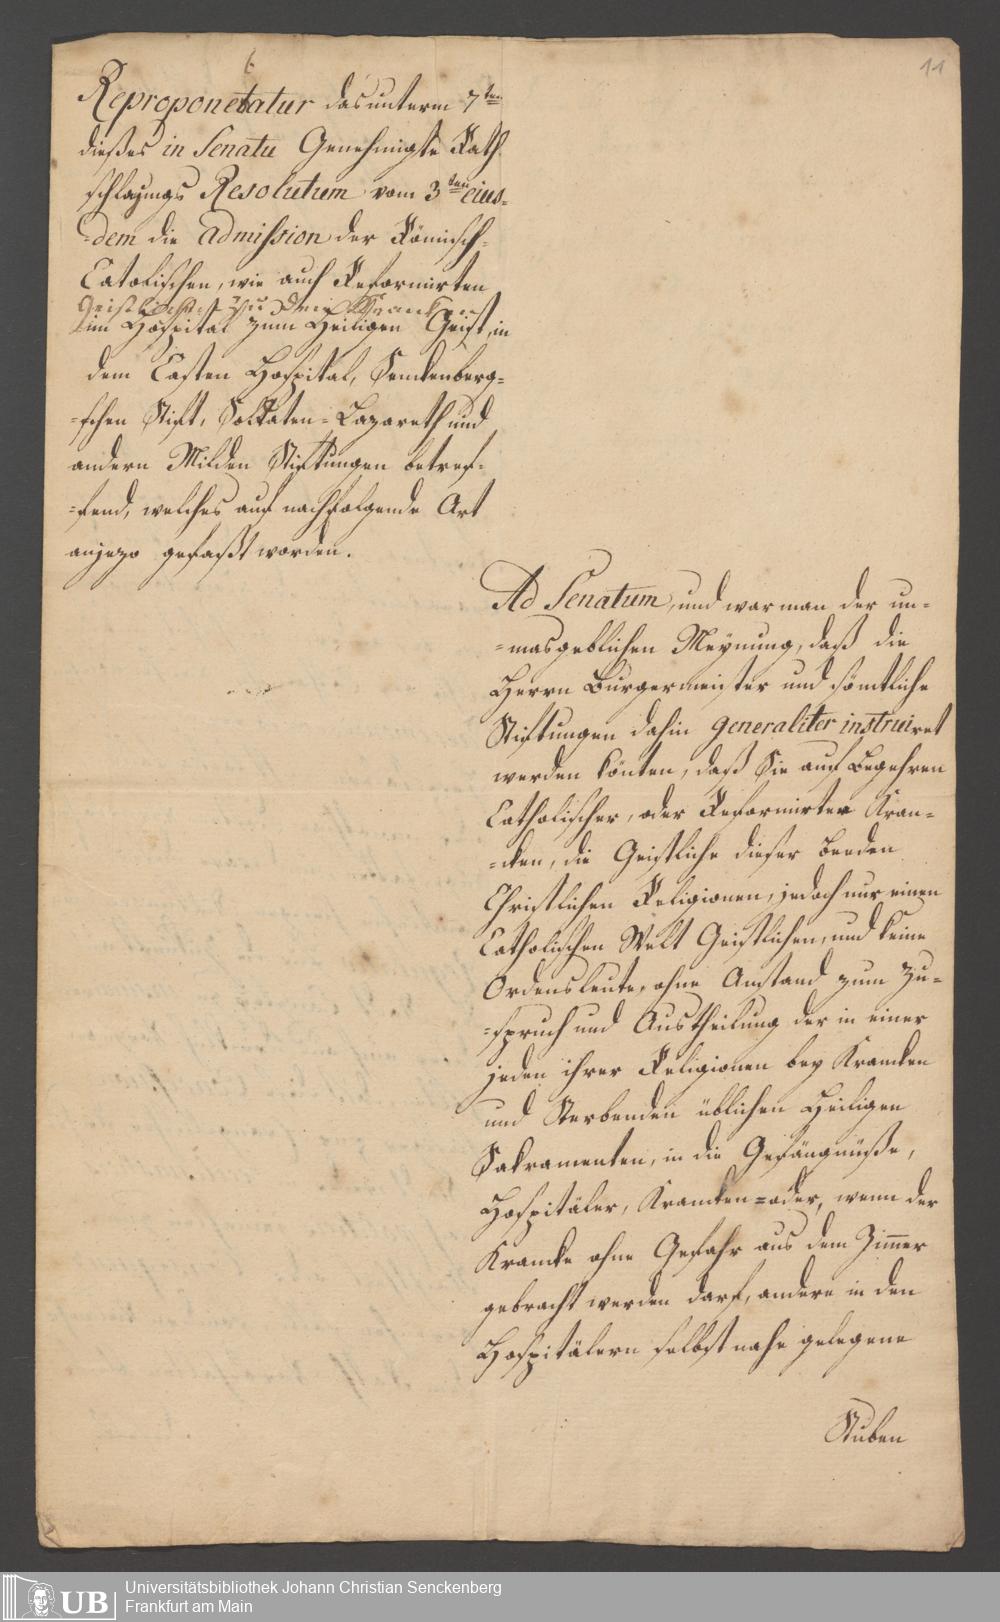 11
6
Reproponetatur das unterm 7ten
dießes in Senatu Genehmigte Rath
schlagungs Resolutum vom 3ten eius-
=dem die Admission der Römisch-
Catolischen, wie auch Reformirten
Geistlichen zu den Krancken
im Hospital zum Heiligen Geist, in
dem Casten Hospital, Senckenberg=
=schen Stift, Soldaten=Lazareth und
andern Milden Stiftungen betref=
=fend, welches auf nachfolgende Art
anjezo gefaßt worden.
Ad Senatum, und war man der un=
=masgeblichen Meynung, daß die
Herrn Burgermeister und sämtliche
Stiftungen dahin generaliter instruiret
werden könten, daß Sie auf Begehren
Catholischer, oder Reformirter Kran=
=cken, die Geistliche dieser beeden
Christlichen Religionen, jedoch nur einen
Catholischen Welt Geistlichen, und keine
Ordensleute, ohne Anstand zum Zu=
=spruch und Austheilung der in einer
jeden ihrer Religionen bey Krancken
und Sterbenden üblichen Heiligen
Sakramenten, in die Gefängnüße,
Hospitäler, Krancken=oder, wenn der
Krancke ohne Gefahr aus dem Zimmer
gebracht werden darf, andere in den
Hospitälern selbst nahe gelegene
Stuben
UB
Universitätsbibliothek Johann Christian Senckenberg
Frankfurt am Main